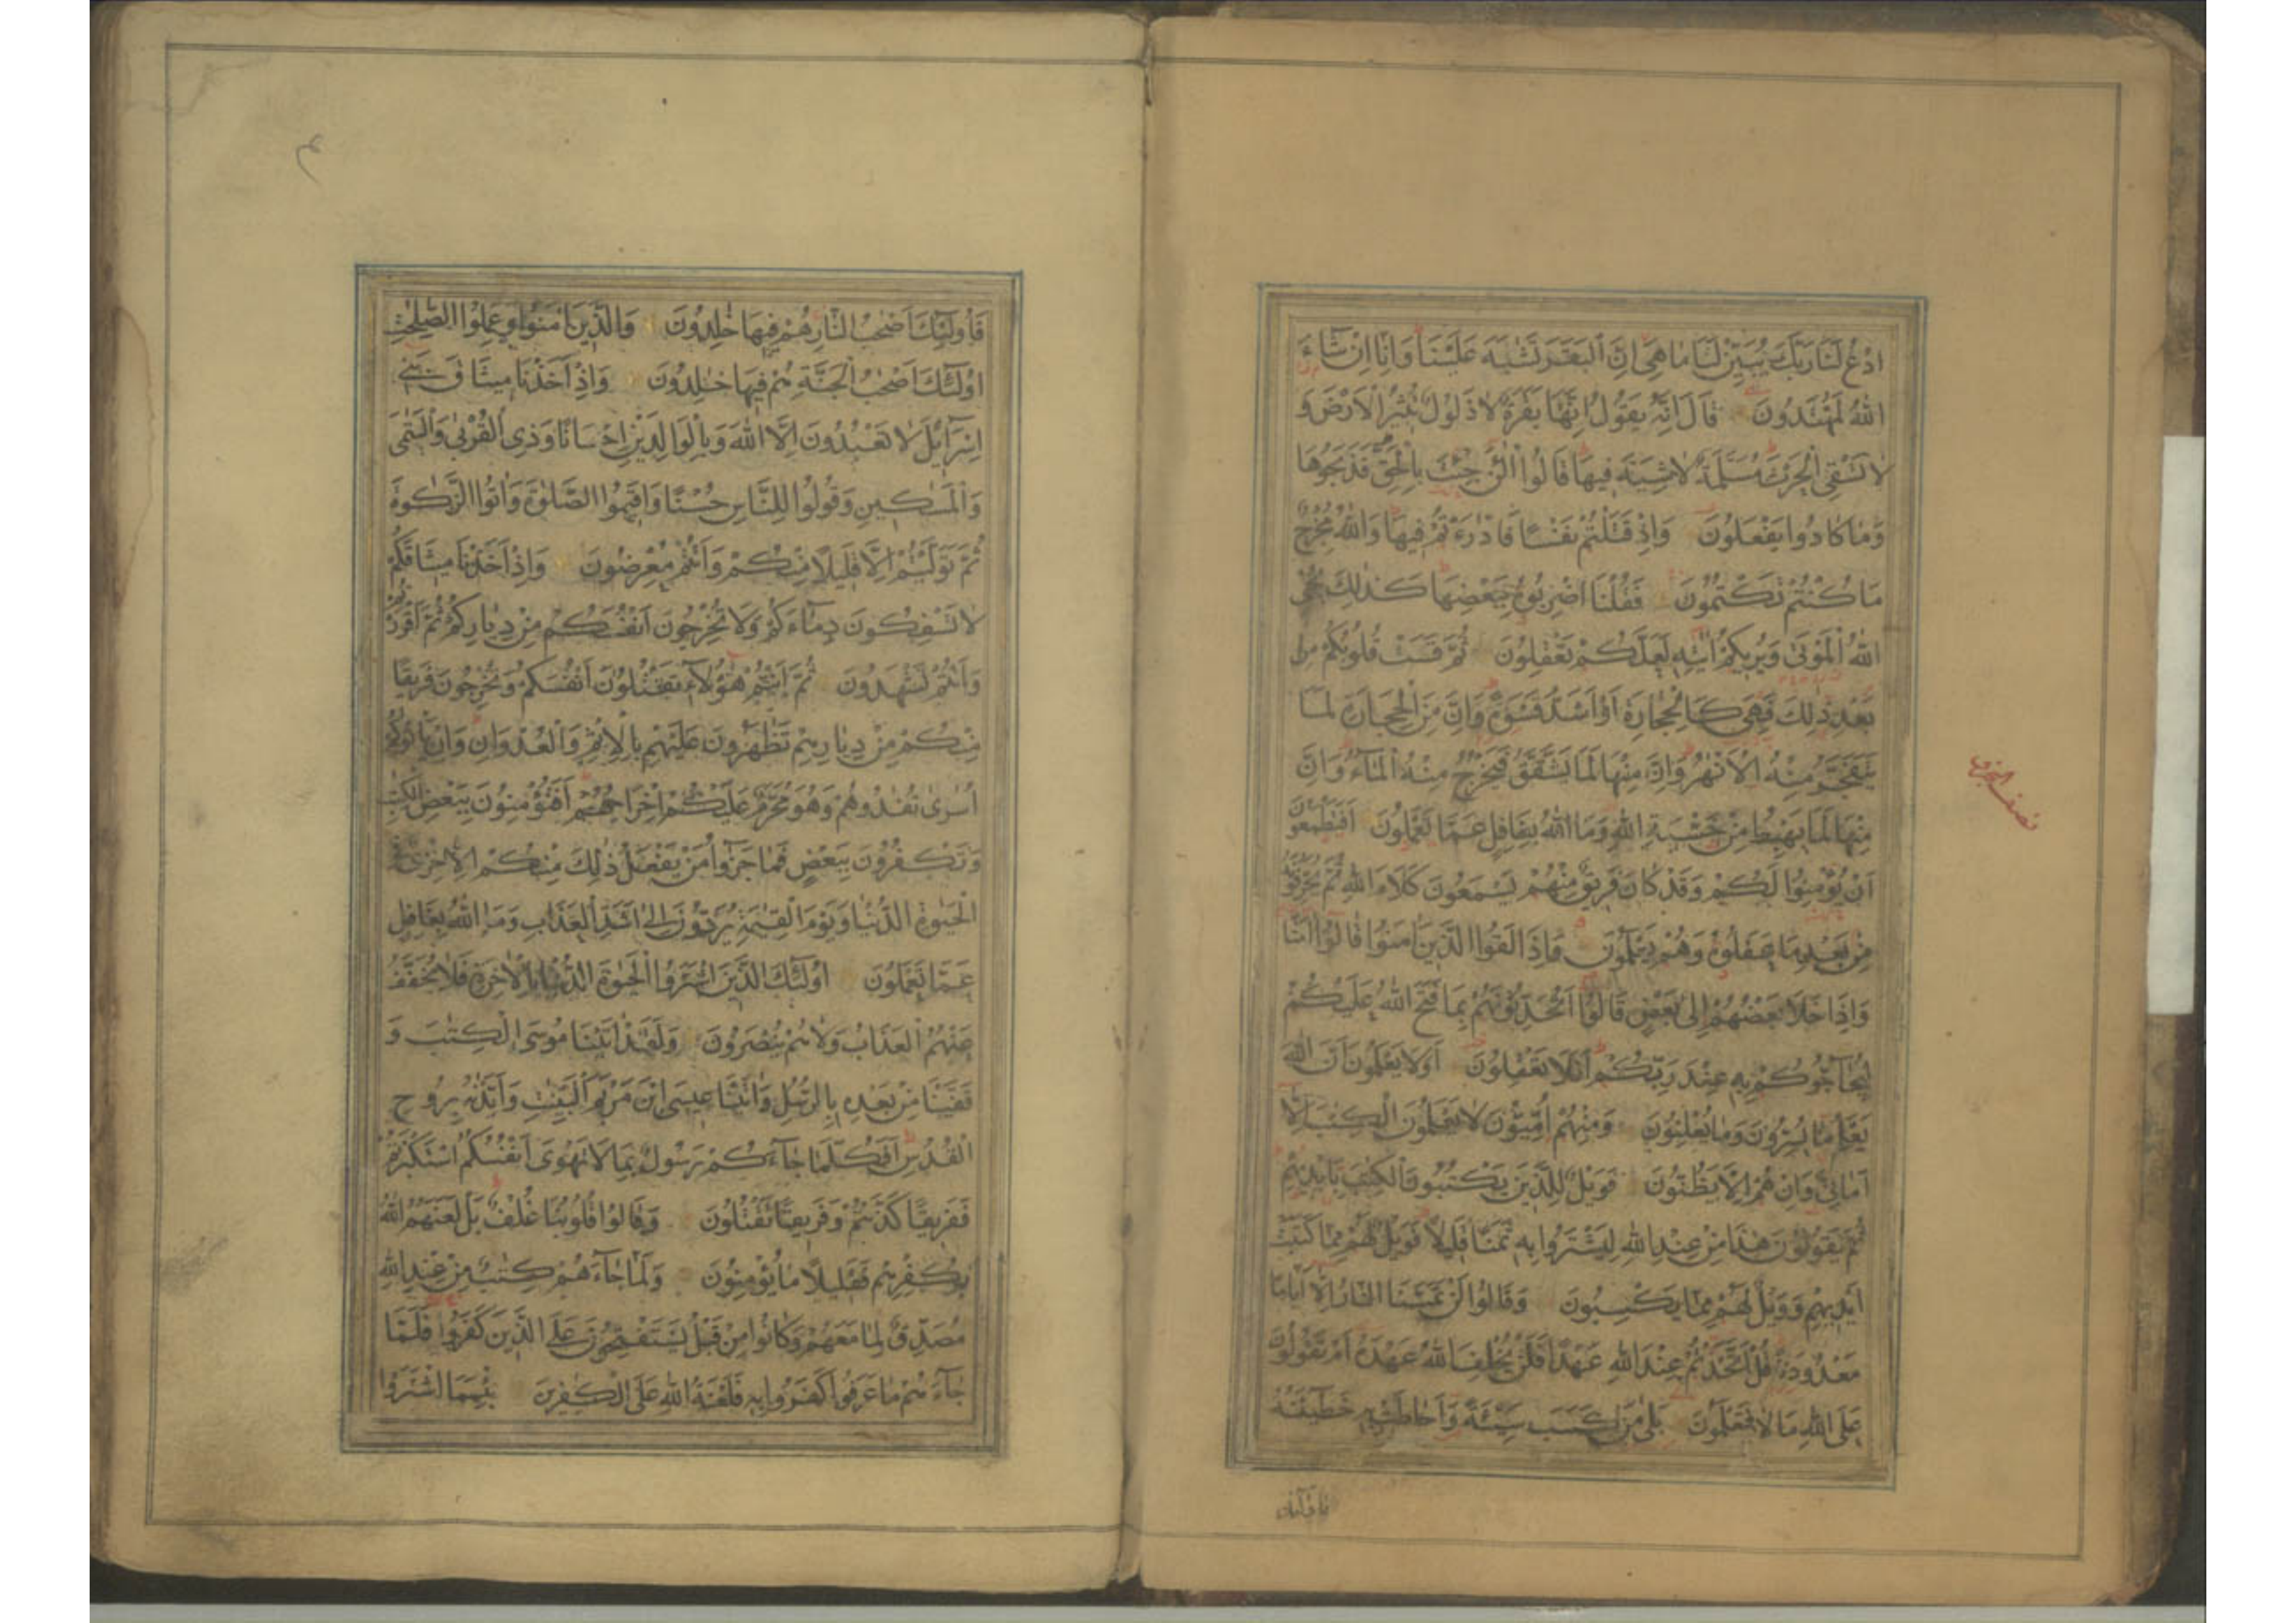 ادْعُ لَنَا رَبَّكَ يُبَيِّنْ لَنَا مَا هِيَ اِنَّ الْبَقَرَ تَشٰبَهَ عَلَيْنَا وَاِنَّا اِنْ شَاءَ
اللّٰهُ لَمُهْتَدُونَ قَالَ اِنَّهُ يَقُولُ اِنَّهَا بَقَرَةٌ لَا ذَلُولٌ تُثِيرُ الْاَرْضَ وَ
لَا تَسْقِى الْحَرْثَ مُسَلَّمَةٌ لَاشِيَةَ فِيهَا قَالُوا الْئٰنَ جِئْتَ بِالْحَقِّ فَذَبَحُوهَا
وَمَا كَادُوا يَفْعَلُونَ وَاِذْ قَتَلْتُمْ نَفْسًا فَادّٰرَءْتُمْ فِيهَا وَاللّٰهُ مُخْرِجٌ
مَا كُنْتُمْ تَكْتُمُونَ فَقُلْنَا اضْرِبُوهُ بِبَعْضِهَا كَذٰلِكَ يُحْىِ
اللّٰهُ الْمَوْتٰى وَيُرِيكُمْ اٰيٰتِهِ لَعَلَّكُمْ تَعْقِلُونَ ثُمَّ قَسَتْ قُلُوبُكُمْ مِنْ
بَعْدِ ذٰلِكَ فَهِىَ كَالْحِجَارَةِ اَوْ اَشَدُّ قَسْوَةً وَاِنَّ مِنَ الْحِجَارَةِ لَمَا
يَتَفَجَّرُ مِنْهُ الْاَنْهٰرُ وَاِنَّ مِنْهَا لَمَا يَشَّقَّقُ فَيَخْرُجُ مِنْهُ الْمَاءُ وَاِنَّ
مِنْهَا لَمَا يَهْبِطُ مِنْ خَشْيَةِ اللّٰهِ وَمَا اللّٰهُ بِغَافِلٍ عَمَّا تَعْمَلُونَ اَفَتَطْمَعُونَ
نصف الجزء
اَنْ يُؤْمِنُوا لَكُمْ وَقَدْ كَانَ فَرِيقٌ مِنْهُمْ يَسْمَعُونَ كَلَامَ اللّٰهِ ثُمَّ يُحَرِّفُونَهُ
مِنْ بَعْدِ مَا عَقَلُوهُ وَهُمْ يَعْلَمُونَ وَاِذَا لَقُوا الَّذِينَ اٰمَنُوا قَالُوا اٰمَنَّا
وَاِذَا خَلَا بَعْضُهُمْ اِلٰى بَعْضٍ قَالُوا اَتُحَدِّثُونَهُمْ بِمَا فَتَحَ اللّٰهُ عَلَيْكُمْ
لِيُحَاجُّوكُمْ بِهِ عِنْدَ رَبِّكُمْ اَفَلَا تَعْقِلُونَ اَوَلَا يَعْلَمُونَ اَنَّ اللّٰهَ
يَعْلَمُ مَا يُسِرُّونَ وَمَا يُعْلِنُونَ وَمِنْهُمْ اُمِّيُّونَ لَا يَعْلَمُونَ الْكِتٰبَ اِلَّا
اَمَانِىَّ وَاِنْ هُمْ اِلَّا يَظُنُّونَ فَوَيْلٌ لِلَّذِينَ يَكْتُبُونَ الْكِتٰبَ بِاَيْدِيهِمْ
ثُمَّ يَقُولُونَ هٰذَا مِنْ عِنْدِ اللّٰهِ لِيَشْتَرُوا بِهِ ثَمَنًا قَلِيلًا فَوَيْلٌ لَهُمْ مِمَّا كَتَبَتْ
اَيْدِيهِمْ وَوَيْلٌ لَهُمْ مِمَّا يَكْسِبُونَ وَقَالُوا لَنْ تَمَسَّنَا النَّارُ اِلَّا اَيَّامًا
مَعْدُودَةً قُلْ اَتَّخَذْتُمْ عِنْدَ اللّٰهِ عَهْدًا فَلَنْ يُخْلِفَ اللّٰهُ عَهْدَهُ اَمْ تَقُولُونَ
عَلَى اللّٰهِ مَا لَا تَعْلَمُونَ بَلٰى مَنْ كَسَبَ سَيِّئَةً وَاَحَاطَتْ بِهِ خَطِيئَتُهُ
فَاُولٰئِكَ اَصْحٰبُ النَّارِ هُمْ فِيهَا خٰلِدُونَ وَالَّذِينَ اٰمَنُوا وَعَمِلُوا الصّٰلِحٰتِ
اُولٰئِكَ اَصْحٰبُ الْجَنَّةِ هُمْ فِيهَا خٰلِدُونَ وَاِذْ اَخَذْنَا مِيثَاقَ بَنِى
اِسْرَائِلَ لَا تَعْبُدُونَ اِلَّا اللّٰهَ وَبِالْوَالِدَيْنِ اِحْسَانًا وَذِى الْقُرْبٰى وَالْيَتٰمٰى
وَالْمَسٰكِينِ وَقُولُوا لِلنَّاسِ حُسْنًا وَاَقِيمُوا الصَّلٰوةَ وَاٰتُوا الزَّكٰوةَ
ثُمَّ تَوَلَّيْتُمْ اِلَّا قَلِيلًا مِنْكُمْ وَاَنْتُمْ مُعْرِضُونَ وَاِذْ اَخَذْنَا مِيثَاقَكُمْ
لَا تَسْفِكُونَ دِمَاءَكُمْ وَلَا تُخْرِجُونَ اَنْفُسَكُمْ مِنْ دِيَارِكُمْ ثُمَّ اَقْرَرْتُمْ
وَاَنْتُمْ تَشْهَدُونَ ثُمَّ اَنْتُمْ هٰؤُلَاءِ تَقْتُلُونَ اَنْفُسَكُمْ وَتُخْرِجُونَ فَرِيقًا
مِنْكُمْ مِنْ دِيَارِهِمْ تَظٰهَرُونَ عَلَيْهِمْ بِالْاِثْمِ وَالْعُدْوَانِ وَاِنْ يَاْتُوكُمْ
اُسٰرٰى تُفٰدُوهُمْ وَهُوَ مُحَرَّمٌ عَلَيْكُمْ اِخْرَاجُهُمْ اَفَتُؤْمِنُونَ بِبَعْضِ الْكِتٰبِ
وَتَكْفُرُونَ بِبَعْضٍ فَمَا جَزَاءُ مَنْ يَفْعَلُ ذٰلِكَ مِنْكُمْ اِلَّا خِزْىٌ فِى
الْحَيٰوةِ الدُّنْيَا وَيَوْمَ الْقِيٰمَةِ يُرَدُّونَ اِلٰى اَشَدِّ الْعَذَابِ وَمَا اللّٰهُ بِغَافِلٍ
عَمَّا تَعْمَلُونَ اُولٰئِكَ الَّذِينَ اشْتَرَوُا الْحَيٰوةَ الدُّنْيَا بِالْاٰخِرَةِ فَلَا يُخَفَّفُ
عَنْهُمُ الْعَذَابُ وَلَا هُمْ يُنْصَرُونَ وَلَقَدْ اٰتَيْنَا مُوسَى الْكِتٰبَ وَ
قَفَّيْنَا مِنْ بَعْدِهِ بِالرُّسُلِ وَاٰتَيْنَا عِيسَى ابْنَ مَرْيَمَ الْبَيِّنٰتِ وَاَيَّدْنٰهُ بِرُوحِ
الْقُدُسِ اَفَكُلَّمَا جَاءَكُمْ رَسُولٌ بِمَا لَا تَهْوٰى اَنْفُسُكُمُ اسْتَكْبَرْتُمْ
فَفَرِيقًا كَذَّبْتُمْ وَفَرِيقًا تَقْتُلُونَ وَقَالُوا قُلُوبُنَا غُلْفٌ بَلْ لَعَنَهُمُ اللّٰهُ
بِكُفْرِهِمْ فَقَلِيلًا مَا يُؤْمِنُونَ وَلَمَّا جَاءَهُمْ كِتٰبٌ مِنْ عِنْدِ اللّٰهِ
مُصَدِّقٌ لِمَا مَعَهُمْ وَكَانُوا مِنْ قَبْلُ يَسْتَفْتِحُونَ عَلَى الَّذِينَ كَفَرُوا فَلَمَّا
جَاءَهُمْ مَا عَرَفُوا كَفَرُوا بِهِ فَلَعْنَةُ اللّٰهِ عَلَى الْكٰفِرِينَ بِئْسَمَا اشْتَرَوْا